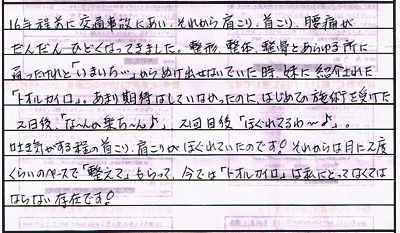 16年程前に交通事故にあい、それから肩こり、首こり、腰痛が
だんだん ひどくなってきました。整形、整体、整骨とあらゆる所に
通ったけれど「いまいち…」からぬけ出せないでいた時、妹に紹介された
「トオルカイロ」。あまり期待はしていなかったのに、はじめての施術を受けた
2日後、「な〜んか楽ち〜ん♪」、2回目後「ほぐれてるわ〜♪」。
吐き気がする程の首こり、肩こりがほぐれていたのです!それからは月に2度
くらいのペースで「整えて」もらって、今では「トオルカイロ」は私にとってなくては
ならない存在です!